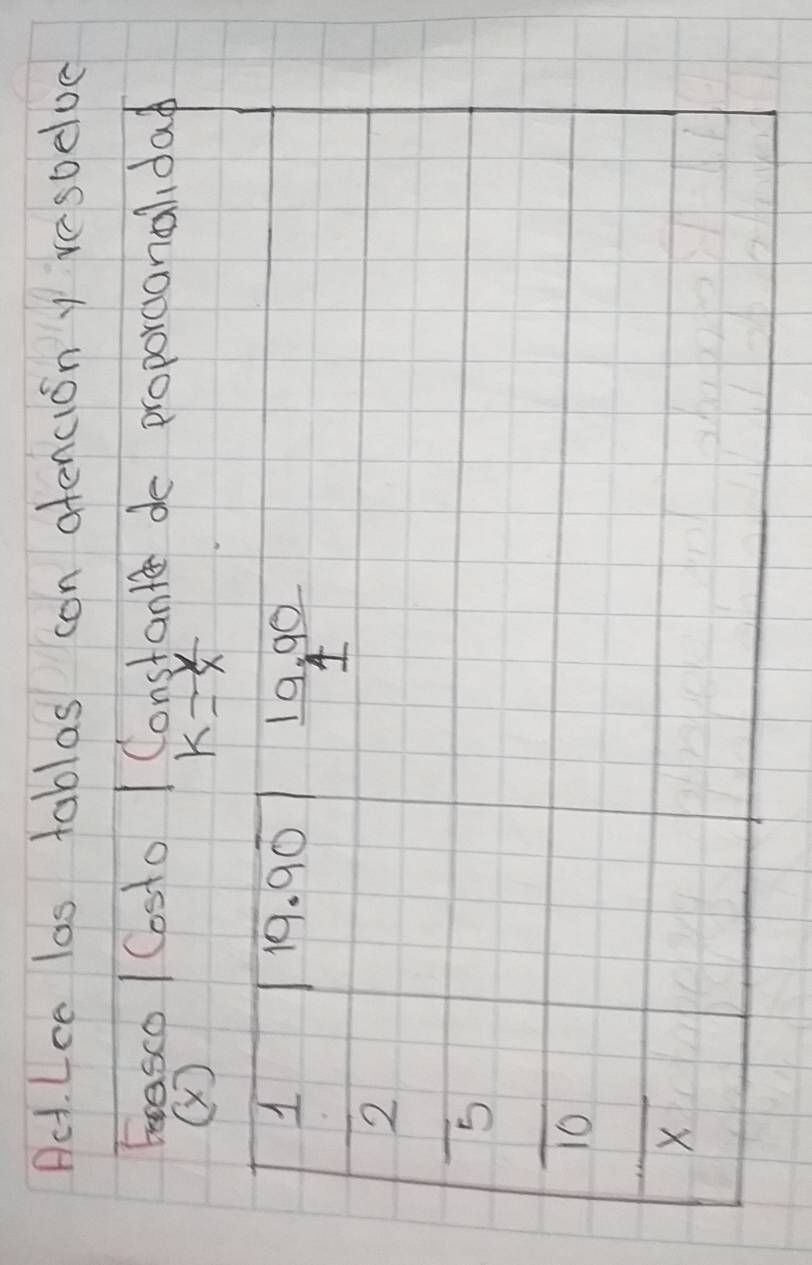 Act. Lee las tablas con atención y resuelve
Frasco (x) | Costo | Constante de proporcionalidad K = y/x
1 | 19.90 | 19.90/1
2
5
10
x